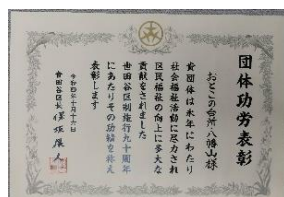 団体功労表彰
おとこの台所八幡山様
貴団体は永年にわたり
社会福祉活動に尽力され
区民福祉の向上に多大な
貢献をされました
世田谷区制施行九十周年
にあたりその功績を称え
表彰します
令和四年十月十六日
世田谷区長 保坂展人